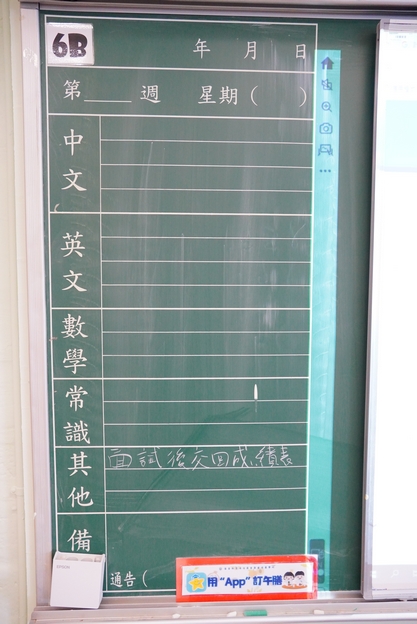 6B
年 月 日
第 週 星期( )
中文
英文
數學
常識
其他
面試後交回成績表
備
通告(
用“App”訂午膳